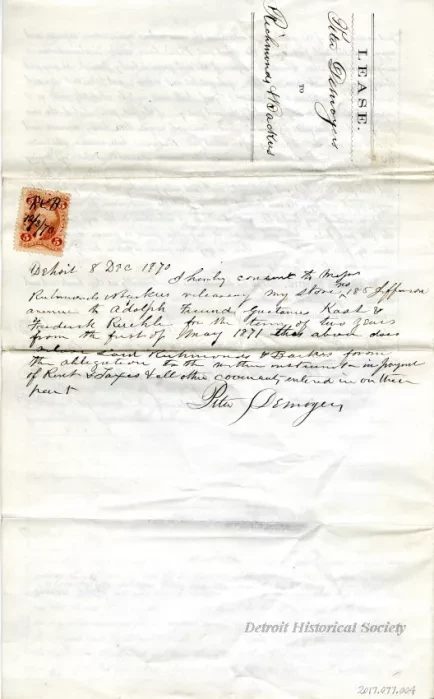 LEASE.
Peter Demoyer
TO
Richmonds & Backus
R & B
12/8/70
5 5
Detroit 8 Dec 1870
I hereby consent to Messrs
Richmonds & Backus releasing my store No 185 Jefferson
avenue to Adolph Freund Gustavus Kast &
Frederick Ruehle for the term of two years
from the first of May 1871 the above does
said Richmonds & Backus from
the obligation to the within instrument in payment
of Rent & Taxes & all other covenants entered in on their
part
Peter Demoyer
Detroit Historical Society
2017.077.004